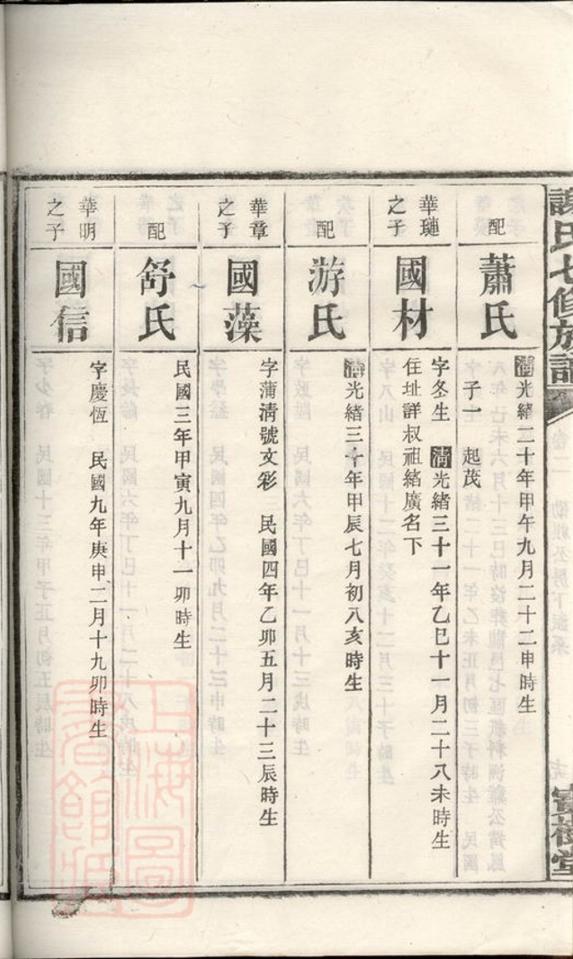 謝氏七修族譜
配
蕭氏
清光緒二十年甲午九月二十二申時生
子一 起茂
華璉之子
國材
字冬生 清光緒三十一年乙巳十一月二十八未時生
住址詳叔祖緒廣名下
配
游氏
清光緒三十年甲辰七月初八亥時生
華章之子
國藻
字蒲清號文彩 民國四年乙卯五月二十三辰時生
配
舒氏
民國三年甲寅九月十一卯時生
華明之子
國信
字慶恆 民國九年庚申二月十九卯時生